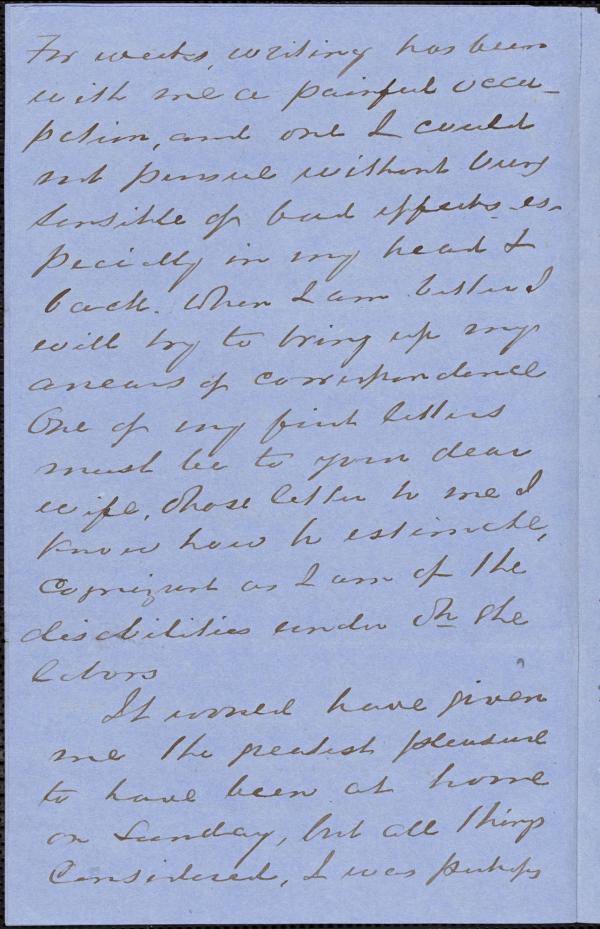 For weeks, writing has been
with me a painful occu-
pation, and one I could
not pursue without being
sensible of bad effects es-
pecially in my head &
back. When I am better I
will try to bring up my
arrears of correspondence
One of my first letters
must be to your dear
wife, whose letter to me I
know how to estimate,
cognizant as I am of the
disabilities under wh she
labors
It would have given
me the greatest pleasure
to have been at home
on Sunday, but all things
considered, I was perhaps